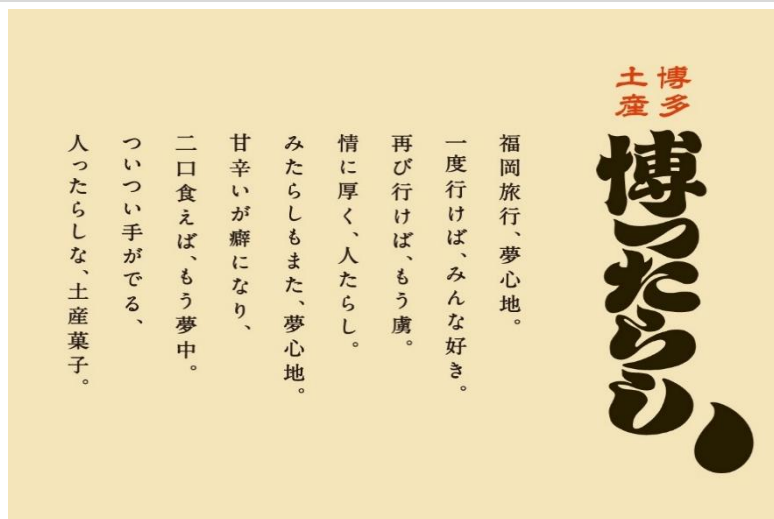 博多
土産
博ったらし
福岡旅行、夢心地。
一度行けば、みんな好き。
再び行けば、もう虜。
情に厚く、人たらし。
みたらしもまた、夢心地。
甘辛いが癖になり、
二口食えば、もう夢中。
ついつい手がでる、
人ったらしな、土産菓子。